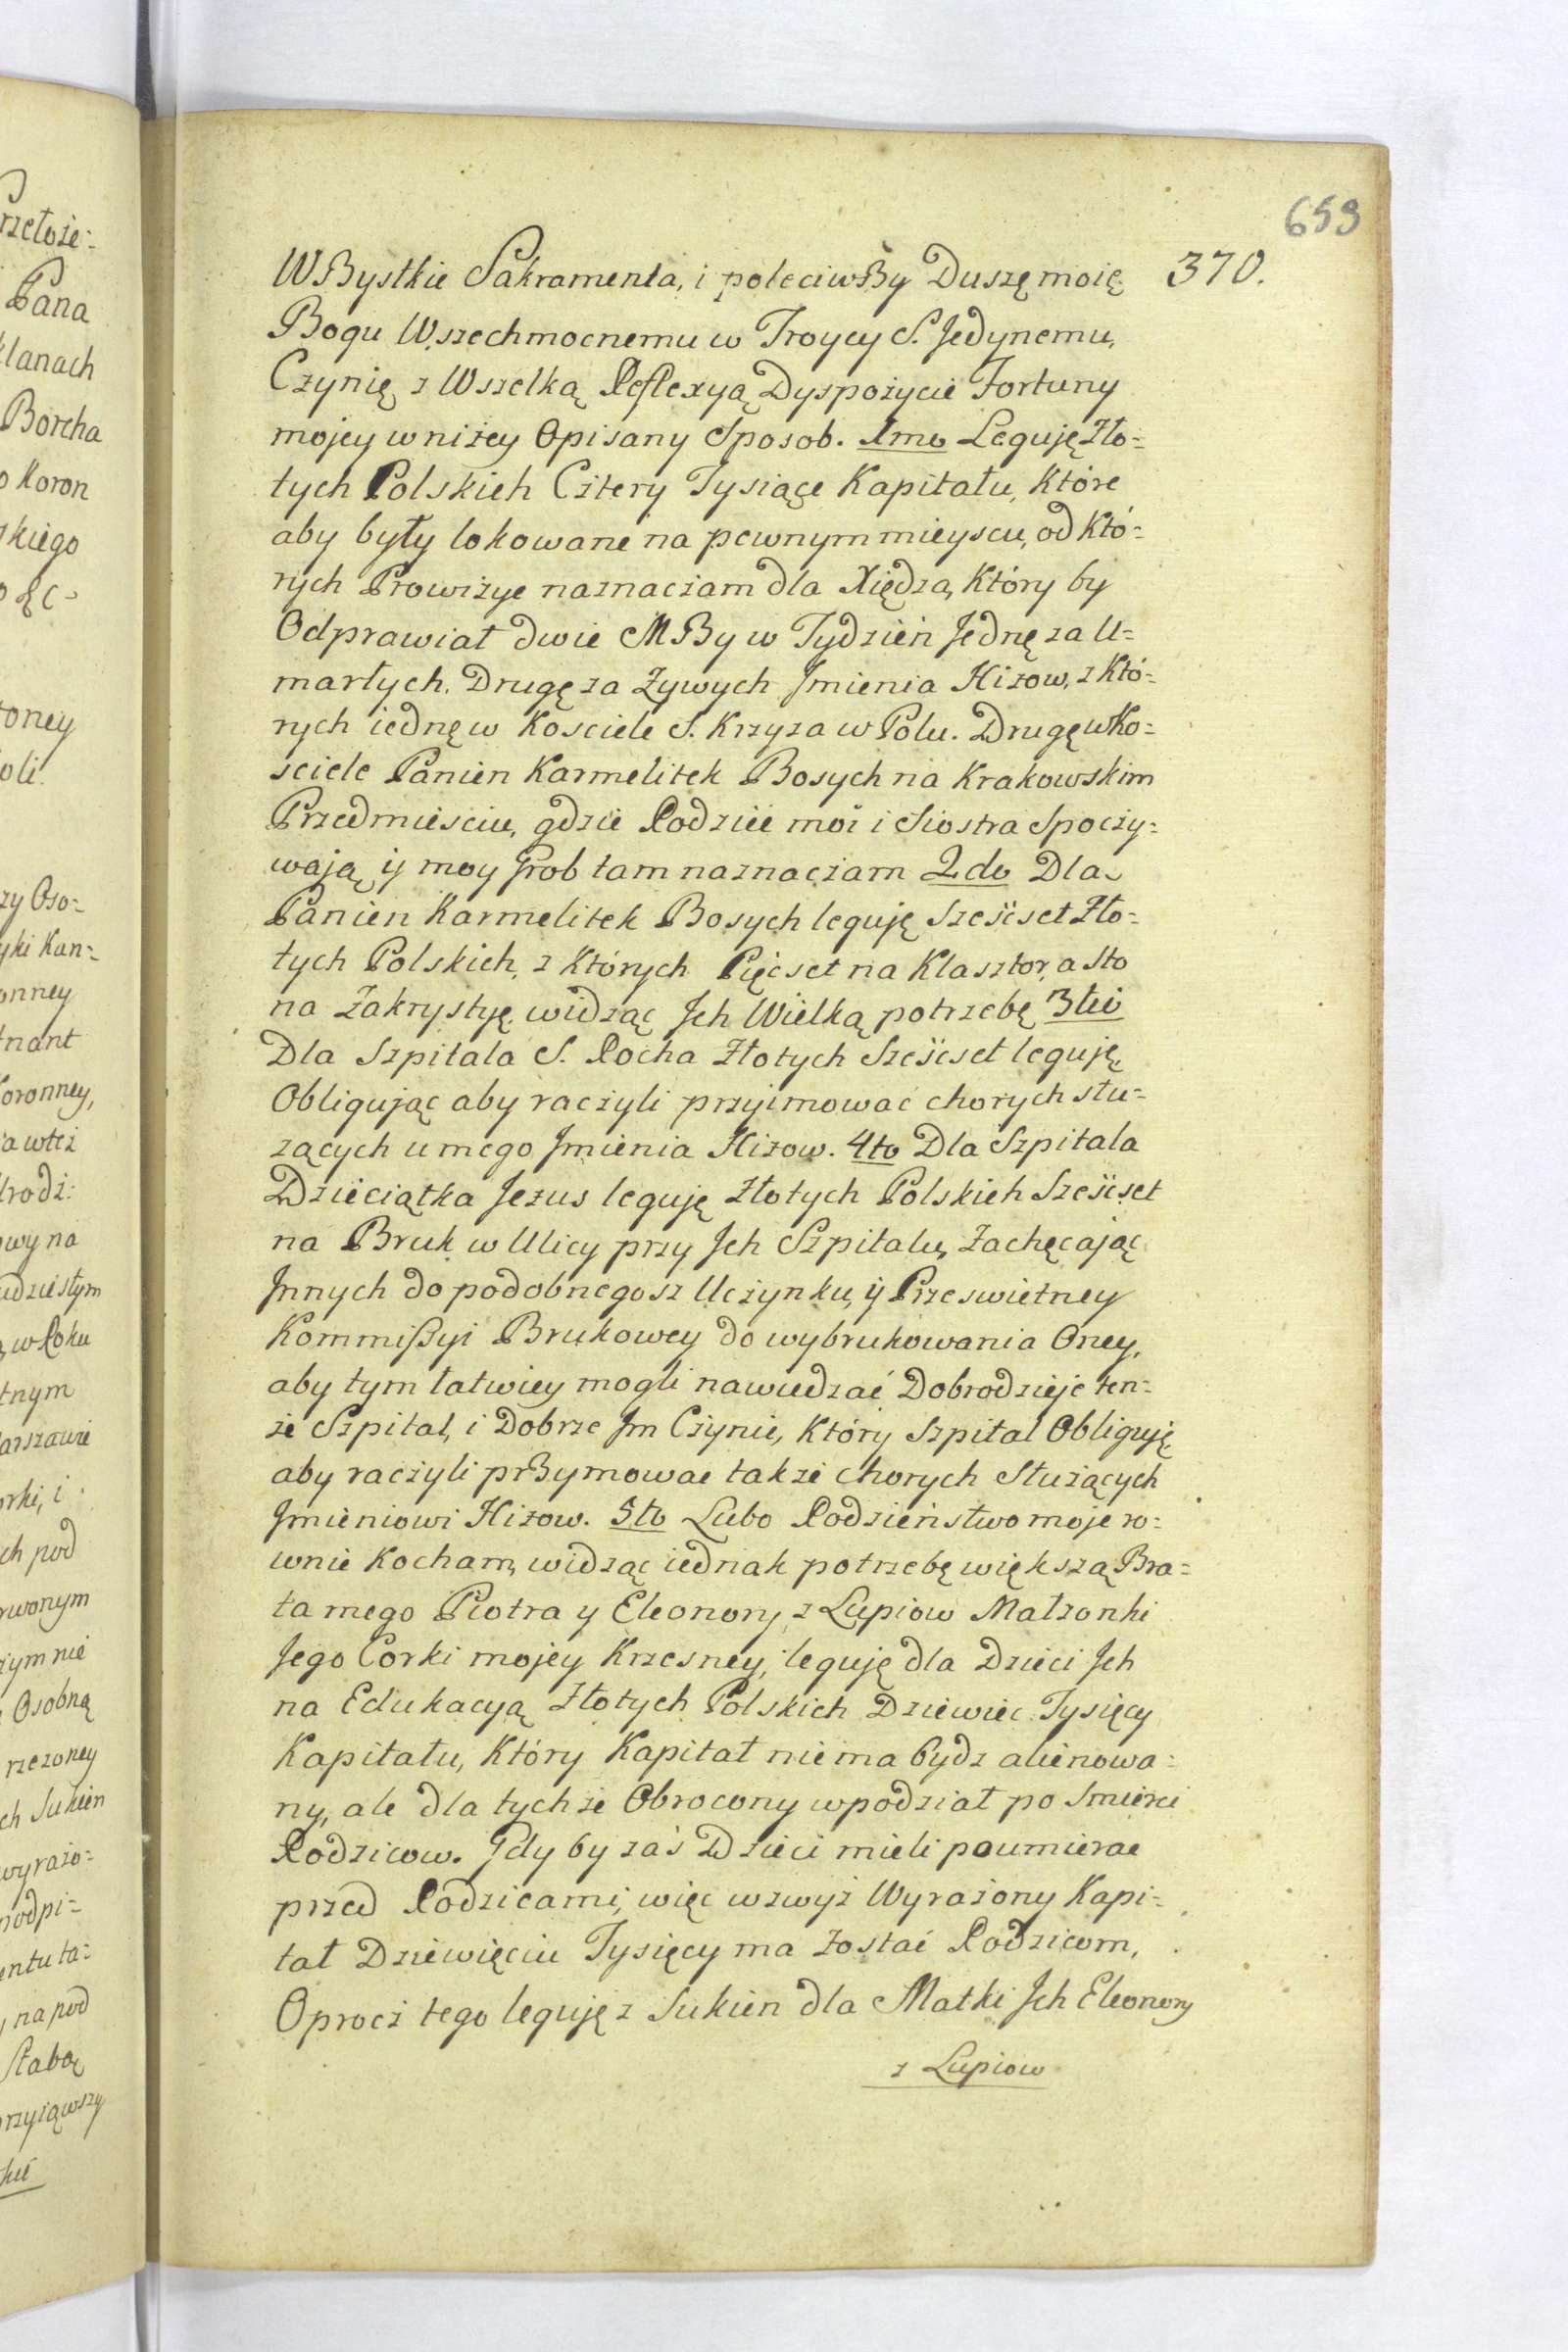 rzełoże=
Pana
klanach
Borcha
o Koron
skiego
toney
oli.
zy Oso=
yki Kan=
onney
tnant
Koronney,
owy na
udziestym
w Roku
tnym
arszawie
orki, i
ch pod
rwonym
rym nie
Osobną
rzezoney
ch Sukien
wyrażo=
podpi=
entu ta=
na pod
słabą
rzyiąwszy
kie
659
370.
Wßystkie Sakramenta, i poleciwßy Duszę moię
Bogu Wszechmocnemu w Troycy S. Jedynemu,
Czynię z Wszelką Reflexyą Dyspozycie Fortuny
mojey w niżey Opisany Sposob. Imo Leguję Zło=
tych Polskich Cztery Tysiące Kapitału, Które
aby były lokowane na pewnym mieyscu, od Któ=
rych Prowizye naznaczam dla Xiędza, Który by
Odprawiał dwie Mßy w Tydzień Jednę za U=
marłych, Drugę za Żywych Jmienia Hizow, z Któ=
rych iednę w Kosciele S. Krzyza w Polu. Drugę w Ko=
sciele Panien Karmelitek Bosych na Krakowskim
Przedmiesciu, gdzie Rodzice moi i Siostra Spoczy=
wają ij moy Grob tam naznaczam 2do Dla
Panien Karmelitek Bosych leguję Szesćset Zło=
tych Polskich, z Których Pięcset na Klasztor, a sto
na Zakrystyę, widząc Jch Wielką potrzebę 3tio
Dla Szpitala S. Rocha Złotych Szesćset leguję
Obligując aby raczyli przyimować chorych słu=
zących u mego Jmienia Hizow. 4to Dla Szpitala
Dzieciątka Jezus leguję Złotych Polskich Szesćset
na Bruk w Ulicy przy Jch Szpitalu, Zachęcając
Jnnych do podobnegosz Uczynku, ij Przeswietney
Kommißyi Brukowey do wybrukowania Oney,
aby tym łatwiey mogli nawiedzać Dobrodzieje ten=
że Szpital, i Dobrze Jm Czynic, Który Szpital Obliguję
aby raczyli prßymowac takze chorych Służących
Jmieniowi Hizow. 5to Lubo Rodzieństwo moje ro=
wnie Kocham, widząc iednak potrzebę większą Bra=
ta mego Piotra y Eleonory z Lupiow Małzonki
Jego Corki mojey Krzesney, leguję dla Dzieci Jch
na Edukacyą Złotych Polskich Dziewięc Tysięcy
Kapitału, Który Kapitał nie ma bydz alienowa=
ny, ale dla tychże Obrocony w podział po Smierci
Rodzicow. Gdy by zaś Dzieci mieli poumierac
przed Rodzicami, więc wzwyż Wyrażony Kapi=
tał Dziewięciu Tysięcy ma Zostać Rodzicom,
Oprocz tego leguję z Sukien dla Matki Jch Eleonory
z Lupiow